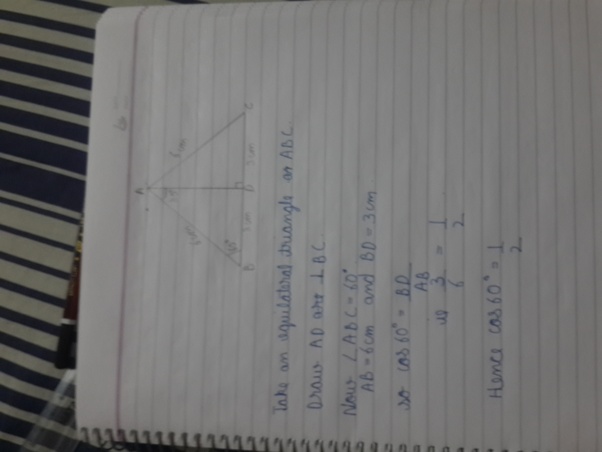 A
6cm
6cm
30°
60°
B
3cm
D
3cm
C
Take an equilateral triangle as ABC.
Draw AD are ⊥ BC.
Now ∠ABC = 60°
AB = 6cm and BD = 3cm.
so cos 60° = BD
AB
is 3 = 1
6 2
Hence cos 60° = 1
2